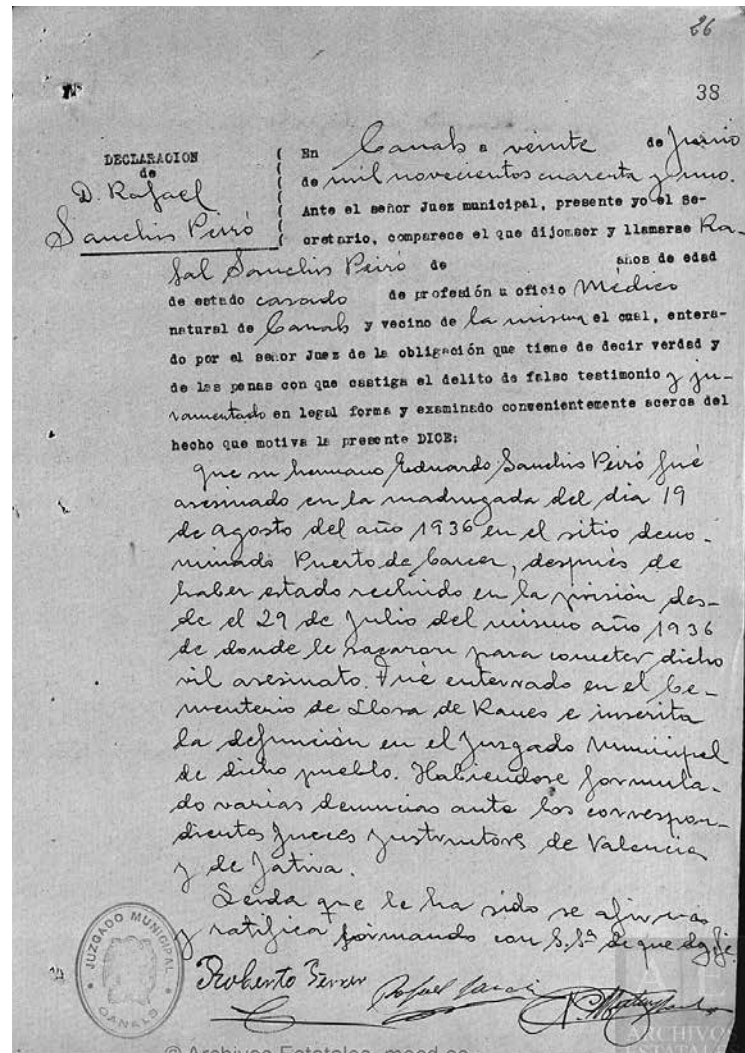 26
38
Nº
DECLARACION
de
D. Rafael
Sanchis Peiró
En Canals a veinte de Junio
de mil novecientos cuarenta y uno.
Ante el señor Juez municipal, presente yo el Se-
cretario, comparece el que dijo ser y llamarse Ra-
fael Sanchis Peiró de años de edad
de estado casado de profesión u oficio Médico
natural de Canals y vecino de la misma el cual, entera-
do por el señor Juez de la obligación que tiene de decir verdad y
de las penas con que castiga el delito de falso testimonio y ju-
ramentado en legal forma y examinado convenientemente acerca del
hecho que motiva la presente DICE:
Que su hermano Eduardo Sanchis Peiró fué
asesinado en la madrugada del dia 19
de Agosto del año 1936 en el sitio deno-
minado Puerto de Carcer, después de
haber estado recluido en la prisión des-
de el 29 de Julio del mismo año 1936
de donde le sacaron para cometer dicho
vil asesinato. Fué enterrado en el Ce-
menterio de Llosa de Ranes e inscrita
la defunción en el Juzgado Municipal
de dicho pueblo. Habiendose formula-
do varias denuncias ante los correspon-
dientes Jueces Instructores de Valencia
y de Jativa.
Leida que le ha sido se afirma
y ratifica firmando con S.Sª de que doy fé.
Roberto Ferrer
Rafael Sanchis
JUZGADO MUNICIPAL
CANALS
ARCHIVOS
ESTATALES
© Archivos Estatales, mecd.es